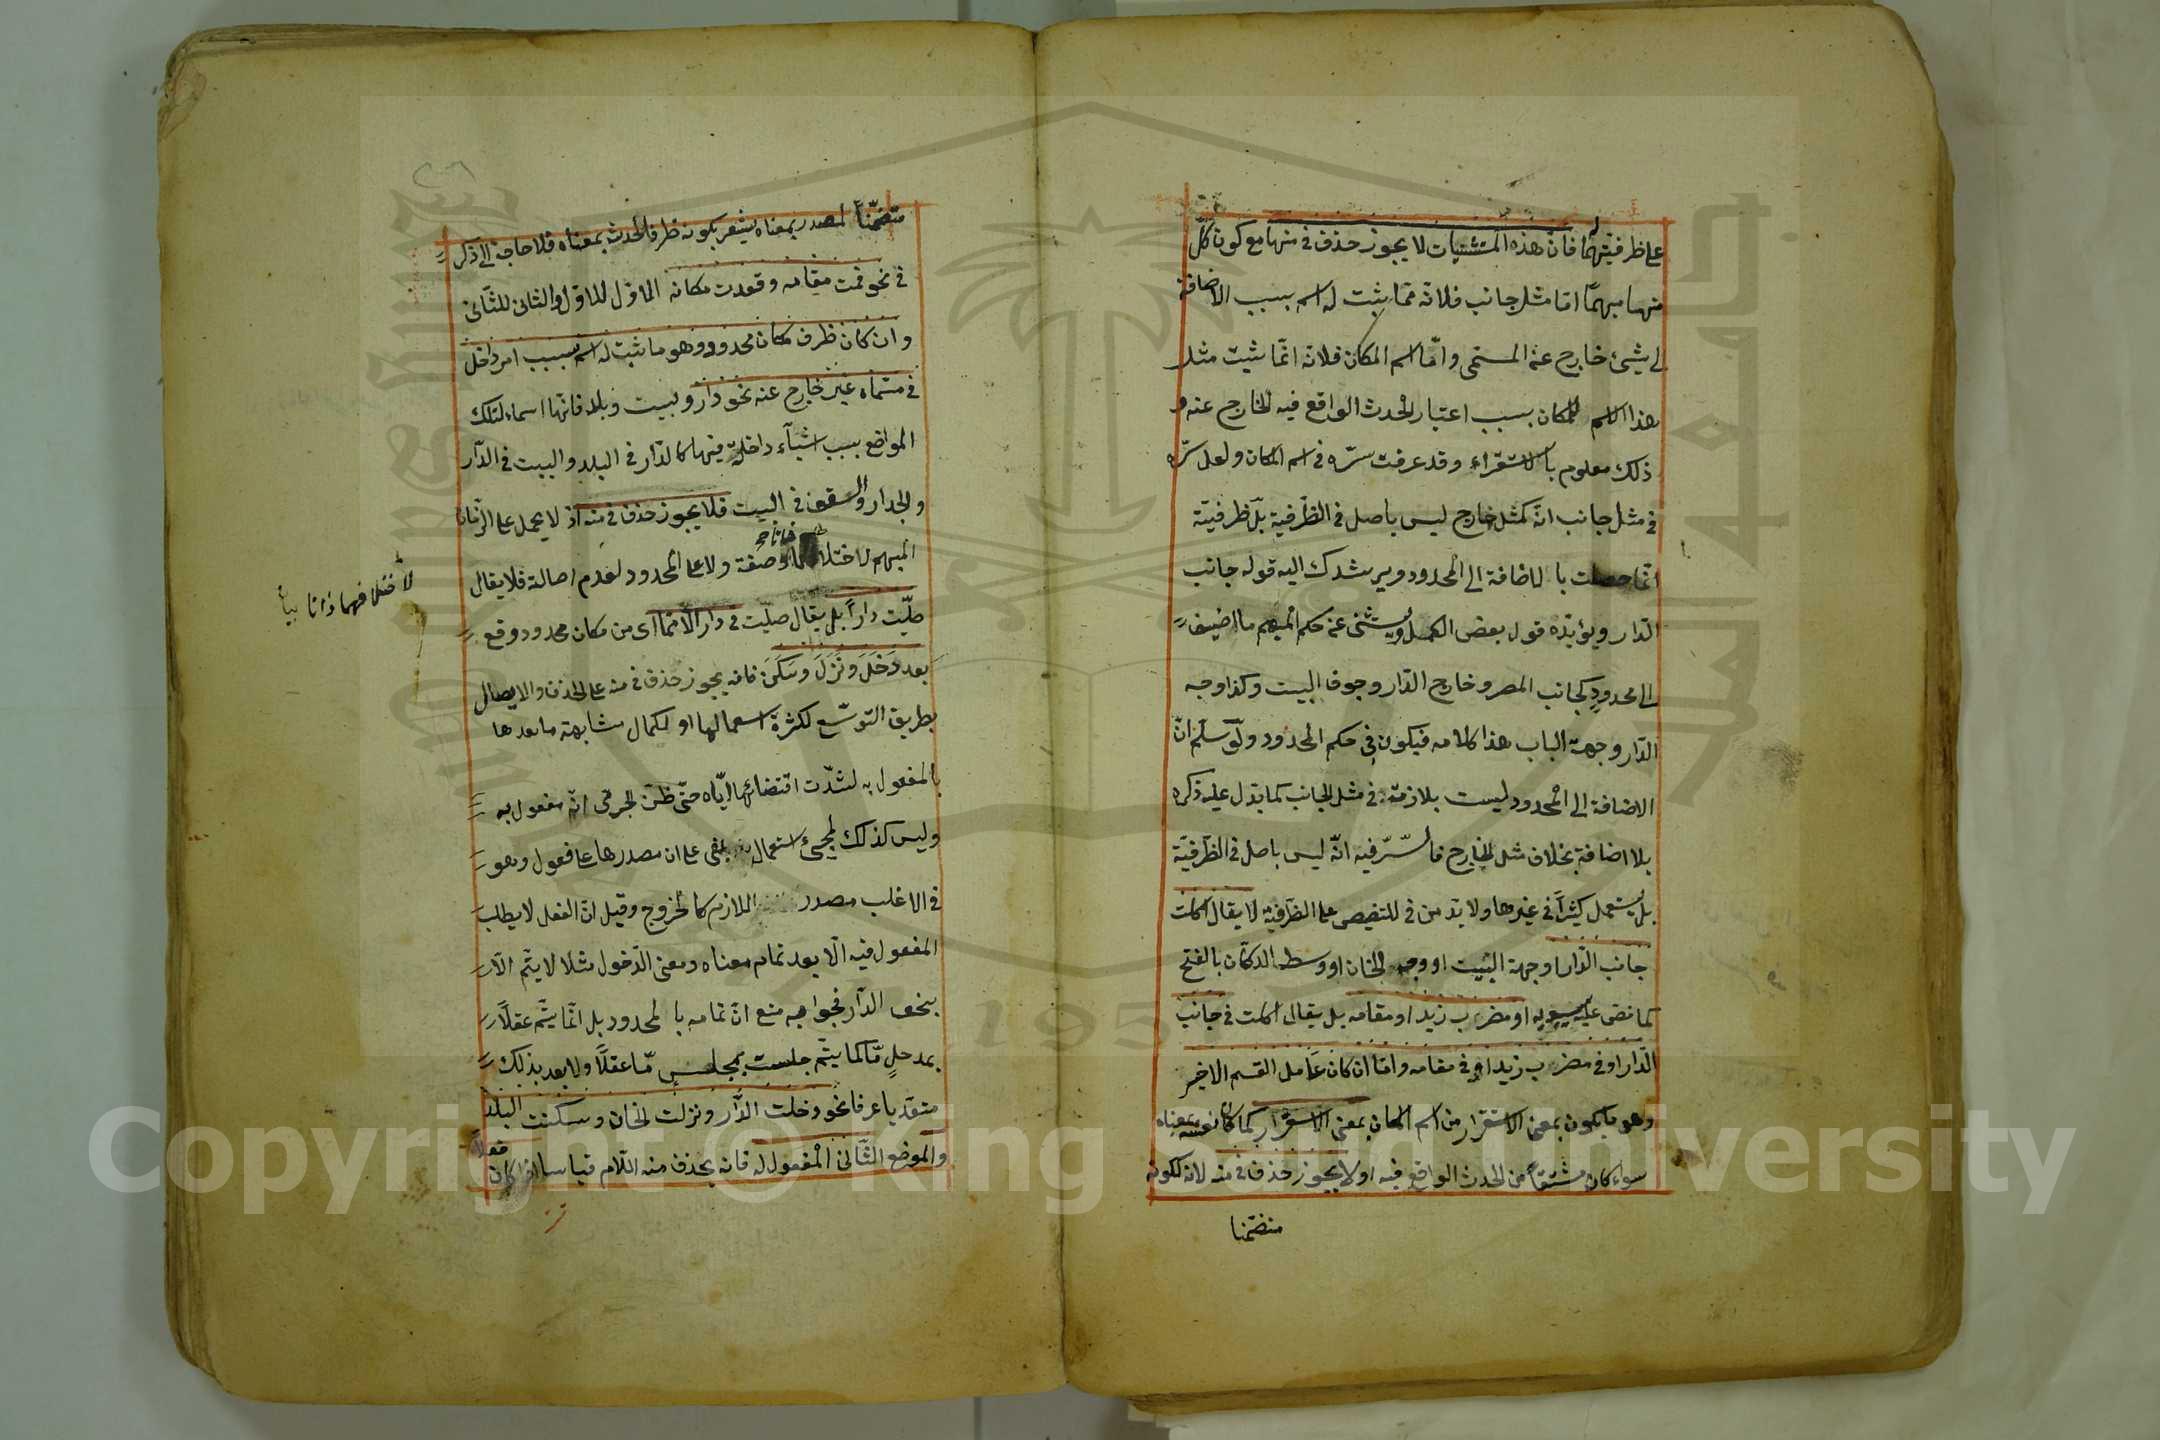 على ظرفيتهما فان هذه المستثنيات لا يجوز حذف في منها مع كون كل
منها مبهما اما مثل جانب فلانه مما يثبت له اسم بسبب الاضافة
الى شيئ خارج عن المسمى واما اسم المكان فلانه انما يثبت مثل
هذا الاسم للمكان بسبب اعتبار الحدث الواقع فيه الخارج عنه و
ذلك معلوم بالاستقراء وقد عرفت سره في اسم المكان ولعل سره
في مثل جانب انه كمثل خارج ليس باصل في الظرفية بل ظرفيته
انما حصلت بالاضافة الى المحدود ويرشدك اليه قوله جانب
الدار ويؤيده قول بعض الكمل ويستثنى عن حكم المبهم ما اضيف
الى محدود كجانب المصر وخارج الدار وجوف البيت وكذا وجه
الدار وجهة الباب هذا كلامه فيكون في حكم المحدود ولو سلم ان
الاضافة الى المحدود ليست بلازمة في مثل الجانب كما يدل عليه ذكره
بلا اضافة بخلاف مثل الخارج فالسر فيه انه ليس باصل في الظرفية
بل يستعمل كثيرا في غيرها ولا بد من في للتنصيص على الظرفية لا يقال اكلت
جانب الدار او جهة البيت او وجه الخان او وسط الدكان بالفتح
كما نص عليه سيبويه او مضرب زيد او مقامه بل يقال اكلت في جانب
الدار او في مضرب زيد او في مقامه واما ان كان عامل القسم الاخير
وهو ما يكون بمعنى الاستقرار من اسم المكان بمعنى الاستقرار كما كان بمعناه
سواء كان مشتقا من الحدث الواقع فيه او لا يجوز حذف في منه لانه لكونه
متضمنا
متضمنا لمصدر بمعناه يشعر بكونه ظرفا لحدث بمعناه فلا حاجة الى ذكر
في نحو قمت مقامه وقعدت مكانه الاول للاول والثاني للثاني
وان كان ظرف مكان محدود وهو ما يثبت له اسم بسبب امر داخل
في مسماه غير خارج عنه نحو دار وبيت وبلد فانها اسماء لتلك
المواضع بسبب اشياء داخلة فيها كالدار في البلد والبيت في الدار
والجدار والسقف في البيت فلا يجوز حذف في منه اذ لا يحمل على الزمان
المبهم لاختلافهما ذاتا وصفة ولا على المحدود لعدم اصالة فلا يقال
صليت دارا بل يقال صليت في دار الا مما اى من مكان محدود وقع
بعد دخل ونزل وسكن فانه يجوز حذف في منه على الحذف والايصال
بطريق التوسع لكثرة استعمالها او لكمال مشابهة ما بعدها
بالمفعول به لشدت اقتضائها اياه حتى ظن الجرمى انه مفعول به
وليس كذلك لمجيئ استعماله بفى على ان مصدرها على فعول وهو
في الاغلب مصدر اللازم كالخروج وقيل ان الفعل لا يطلب
المفعول فيه الا بعد تمام معناه ومعنى الدخول مثلا لا يتم الا
بنحو الدار فجوابه منع ان تمامه بالمحدود بل انما يتم عقلا
بمدخل ما كما يتم جلست بمجلس ما عقلا ولا يعد بذلك
متعديا عرفا نحو دخلت الدار ونزلت الخان وسكنت البلد
والموضع الثاني المفعول له فانه يحذف منه اللام قياسا اذا كان
فعلا
لاختلافهما ذاتا
Copyright © King Saud University
1957